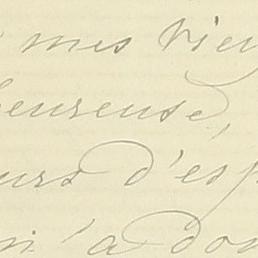 mes vieu
heureuse,
urs d'esp
m'a don